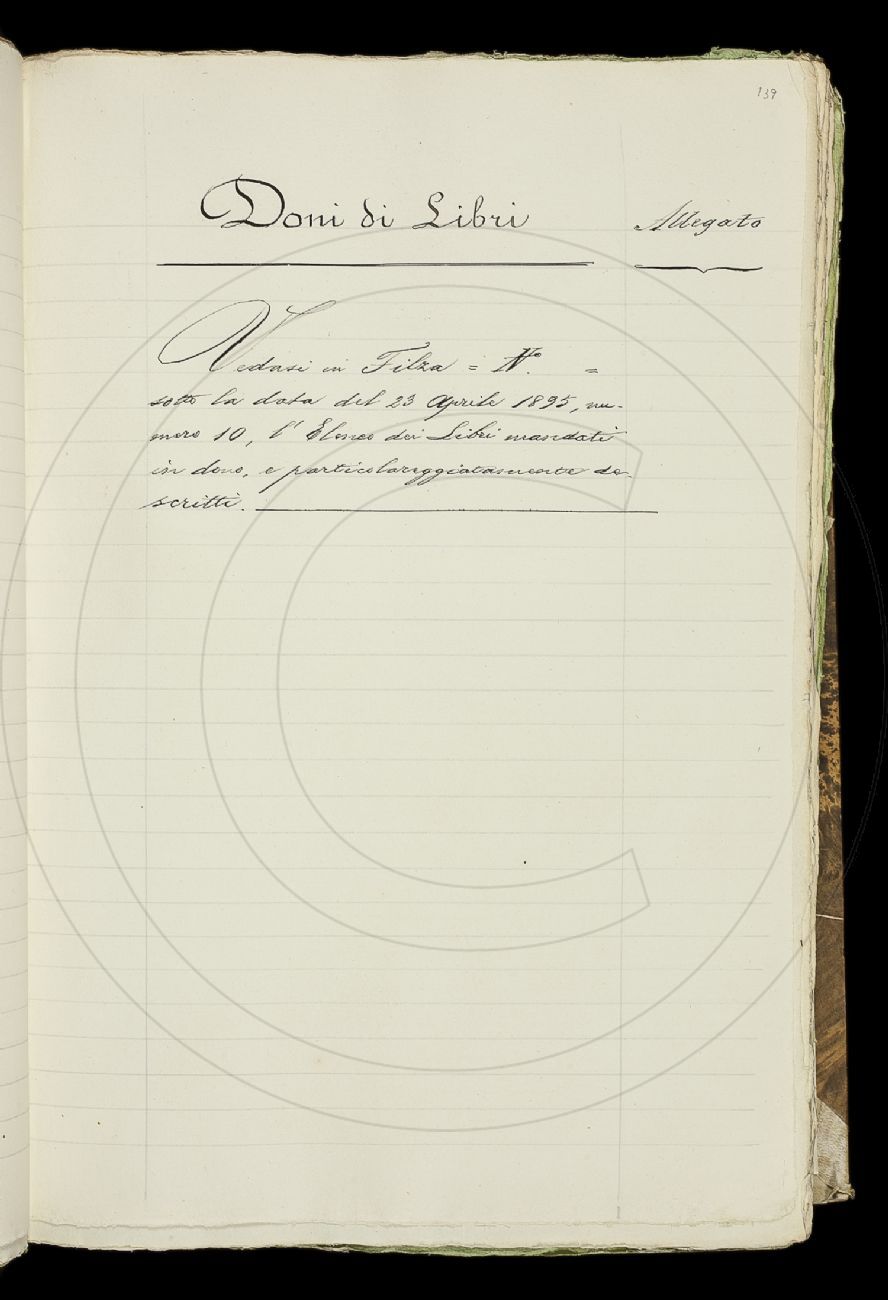 139
Doni di Libri
Allegato
Vedasi in Filza = N.º =
sotto la data del 23 Aprile 1895, nu-
mero 10, l' Elenco dei Libri mandati
in dono, e particolareggiatamente de-
scritti.